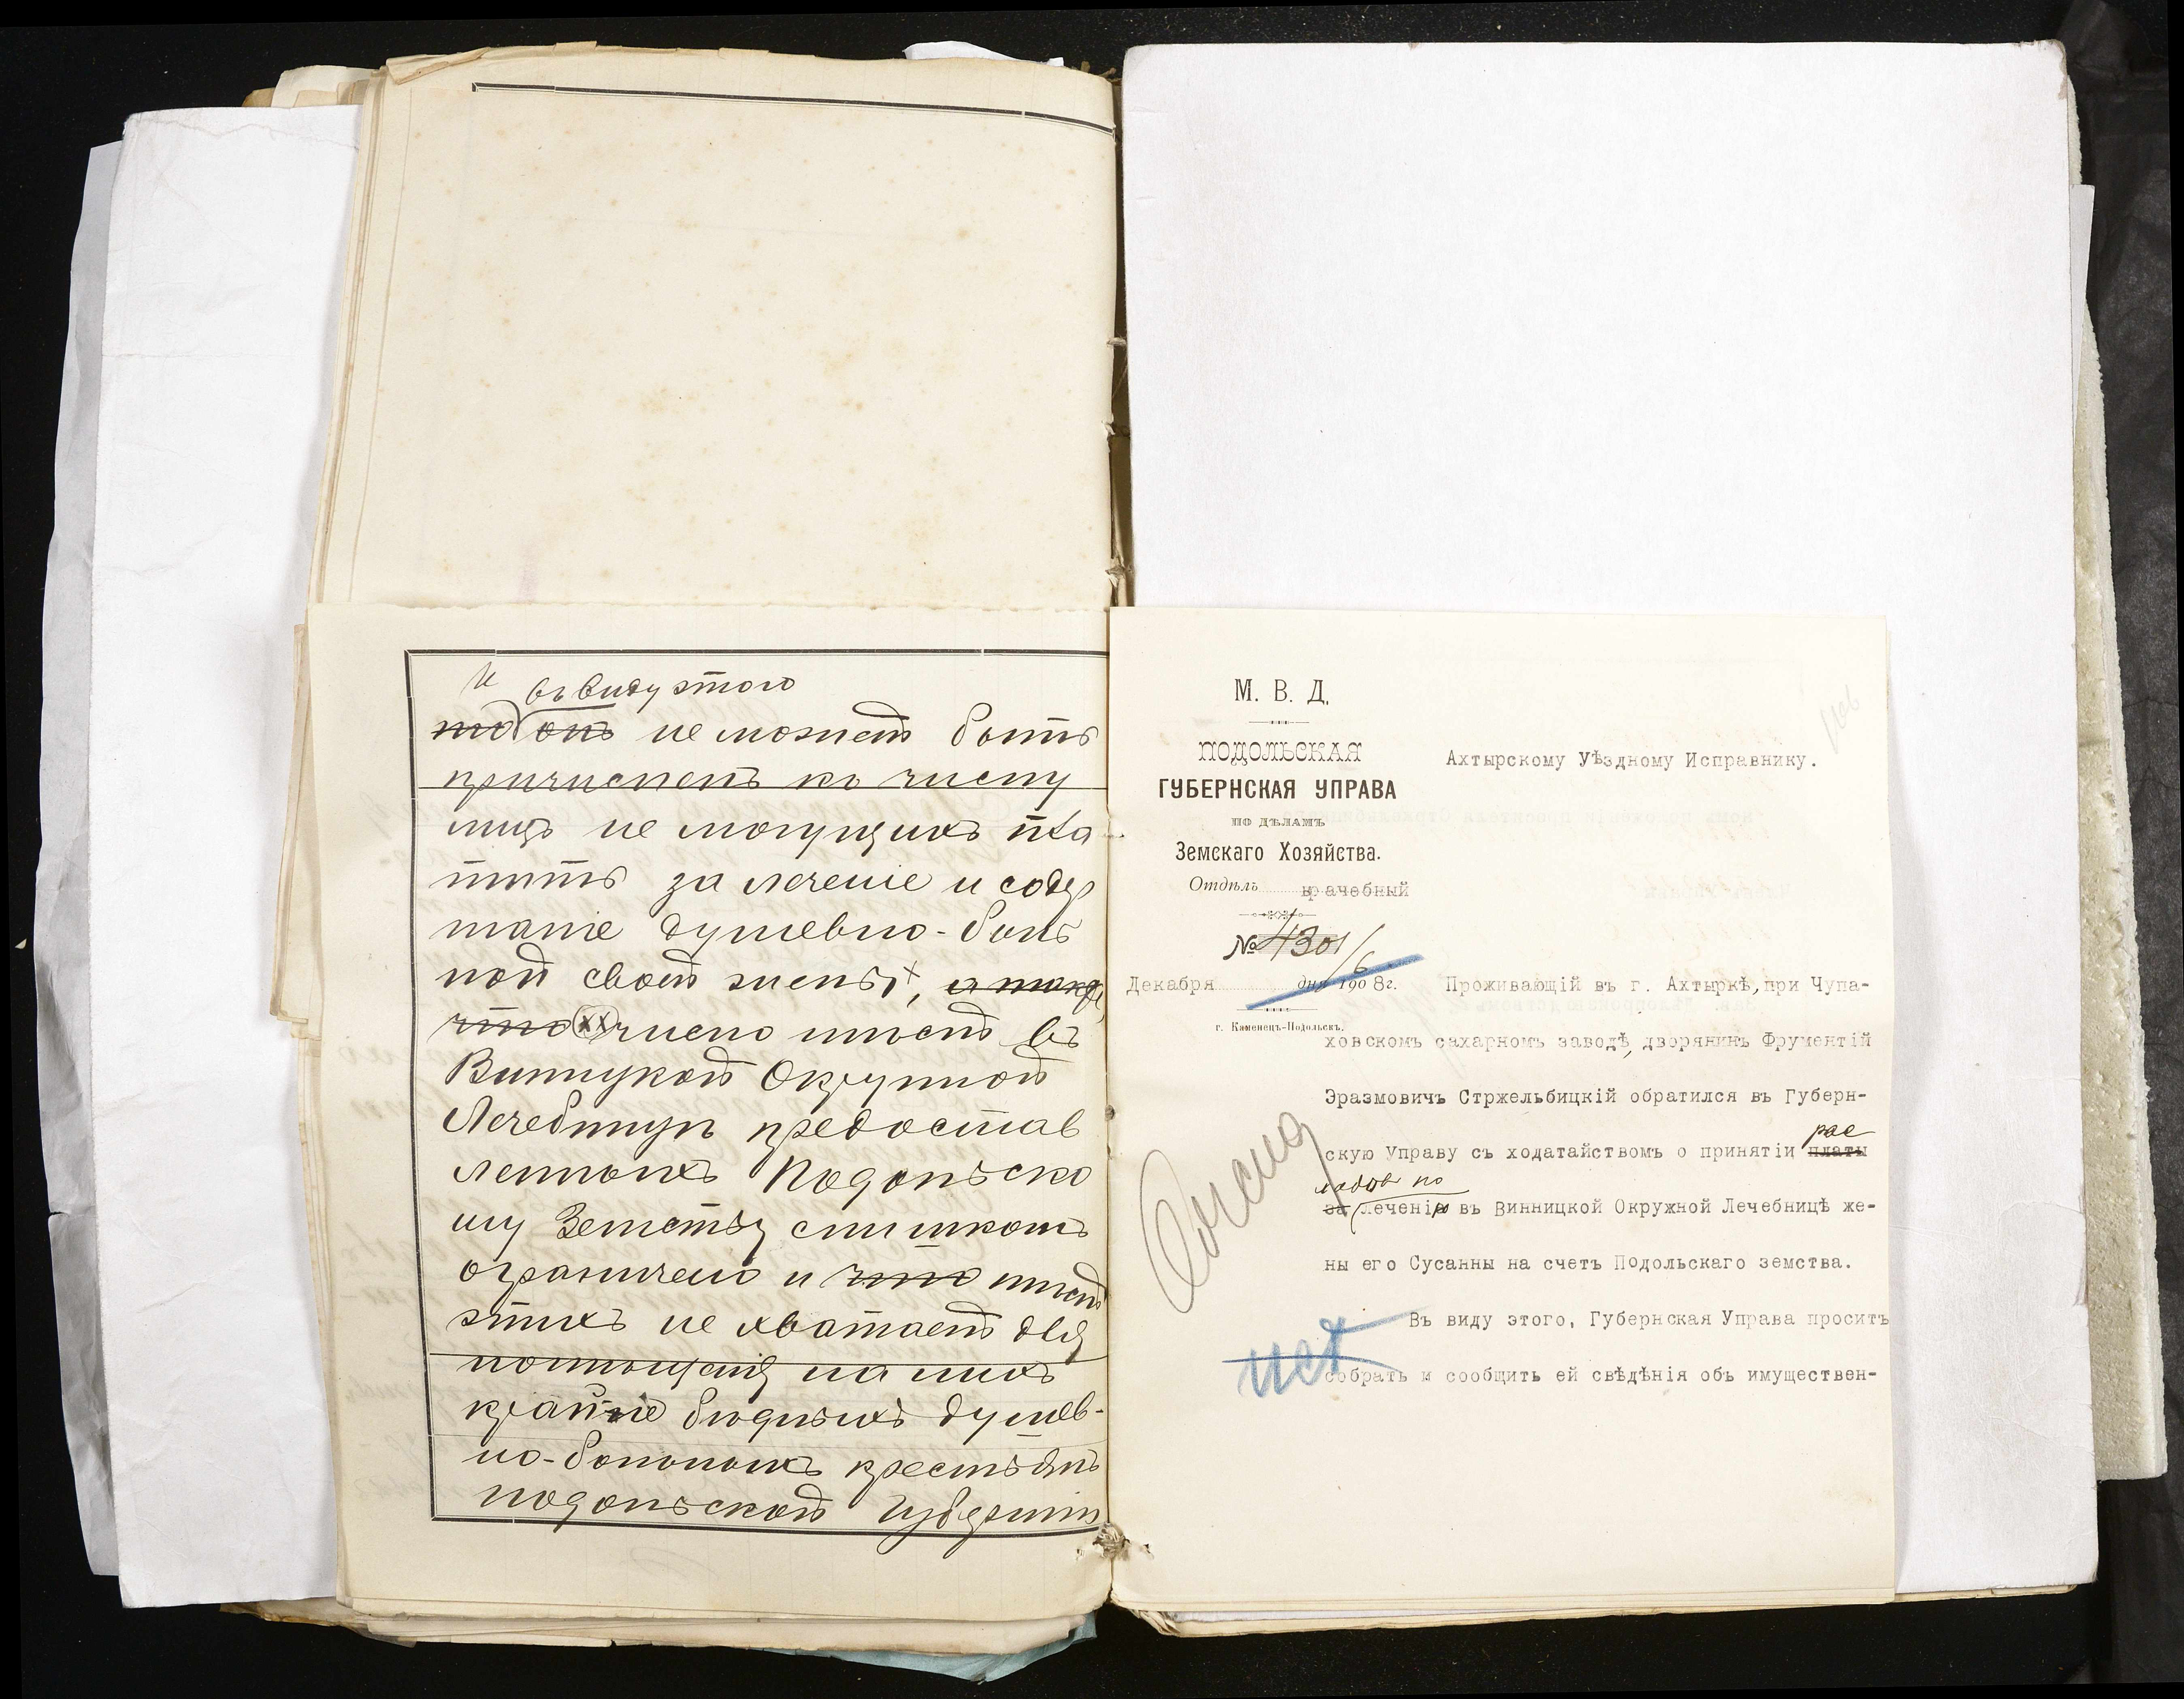 и въ виду этого
то онъ не можетъ быть
причисленъ къ числу
лицъ не могущихъ пла
тить за леченіе и содер
жаніе душевно-боль
ной своей жены, а также
что число мѣстъ въ
Винницкой Окружной
Лечебницѣ предостав
ленныхъ Подольско
му Земству слишкомъ
ограничено и что мѣстъ
этихъ не хватаетъ для
помѣщенія на нихъ
крайне бѣдныхъ душев-
но-больныхъ крестьянъ
Подольской губерніи
М. В. Д.
ПОДОЛЬСКАЯ
ГУБЕРНСКАЯ УПРАВА
ПО ДѢЛАМЪ
Земскаго Хозяйства.
Отдѣлъ врачебный
№ 4301/6
Декабря дня 1908г.
г. Каменецъ-Подольскъ.
Ахтырскому Уѣздному Исправнику.
Проживающій въ г. Ахтыркѣ, при Чупа-
ховскомъ сахарномъ заводѣ, дворянинъ Фрументій
Эразмовичъ Стржельбицкій обратился въ Губерн-
скую Управу съ ходатайствомъ о принятіи платы рас
ходовъ по
за леченію въ Винницкой Окружной Лечебницѣ же-
ны его Сусанны на счетъ Подольскаго земства.
Въ виду этого, Губернская Управа проситъ
собрать и сообщить ей свѣдѣнія объ имуществен-